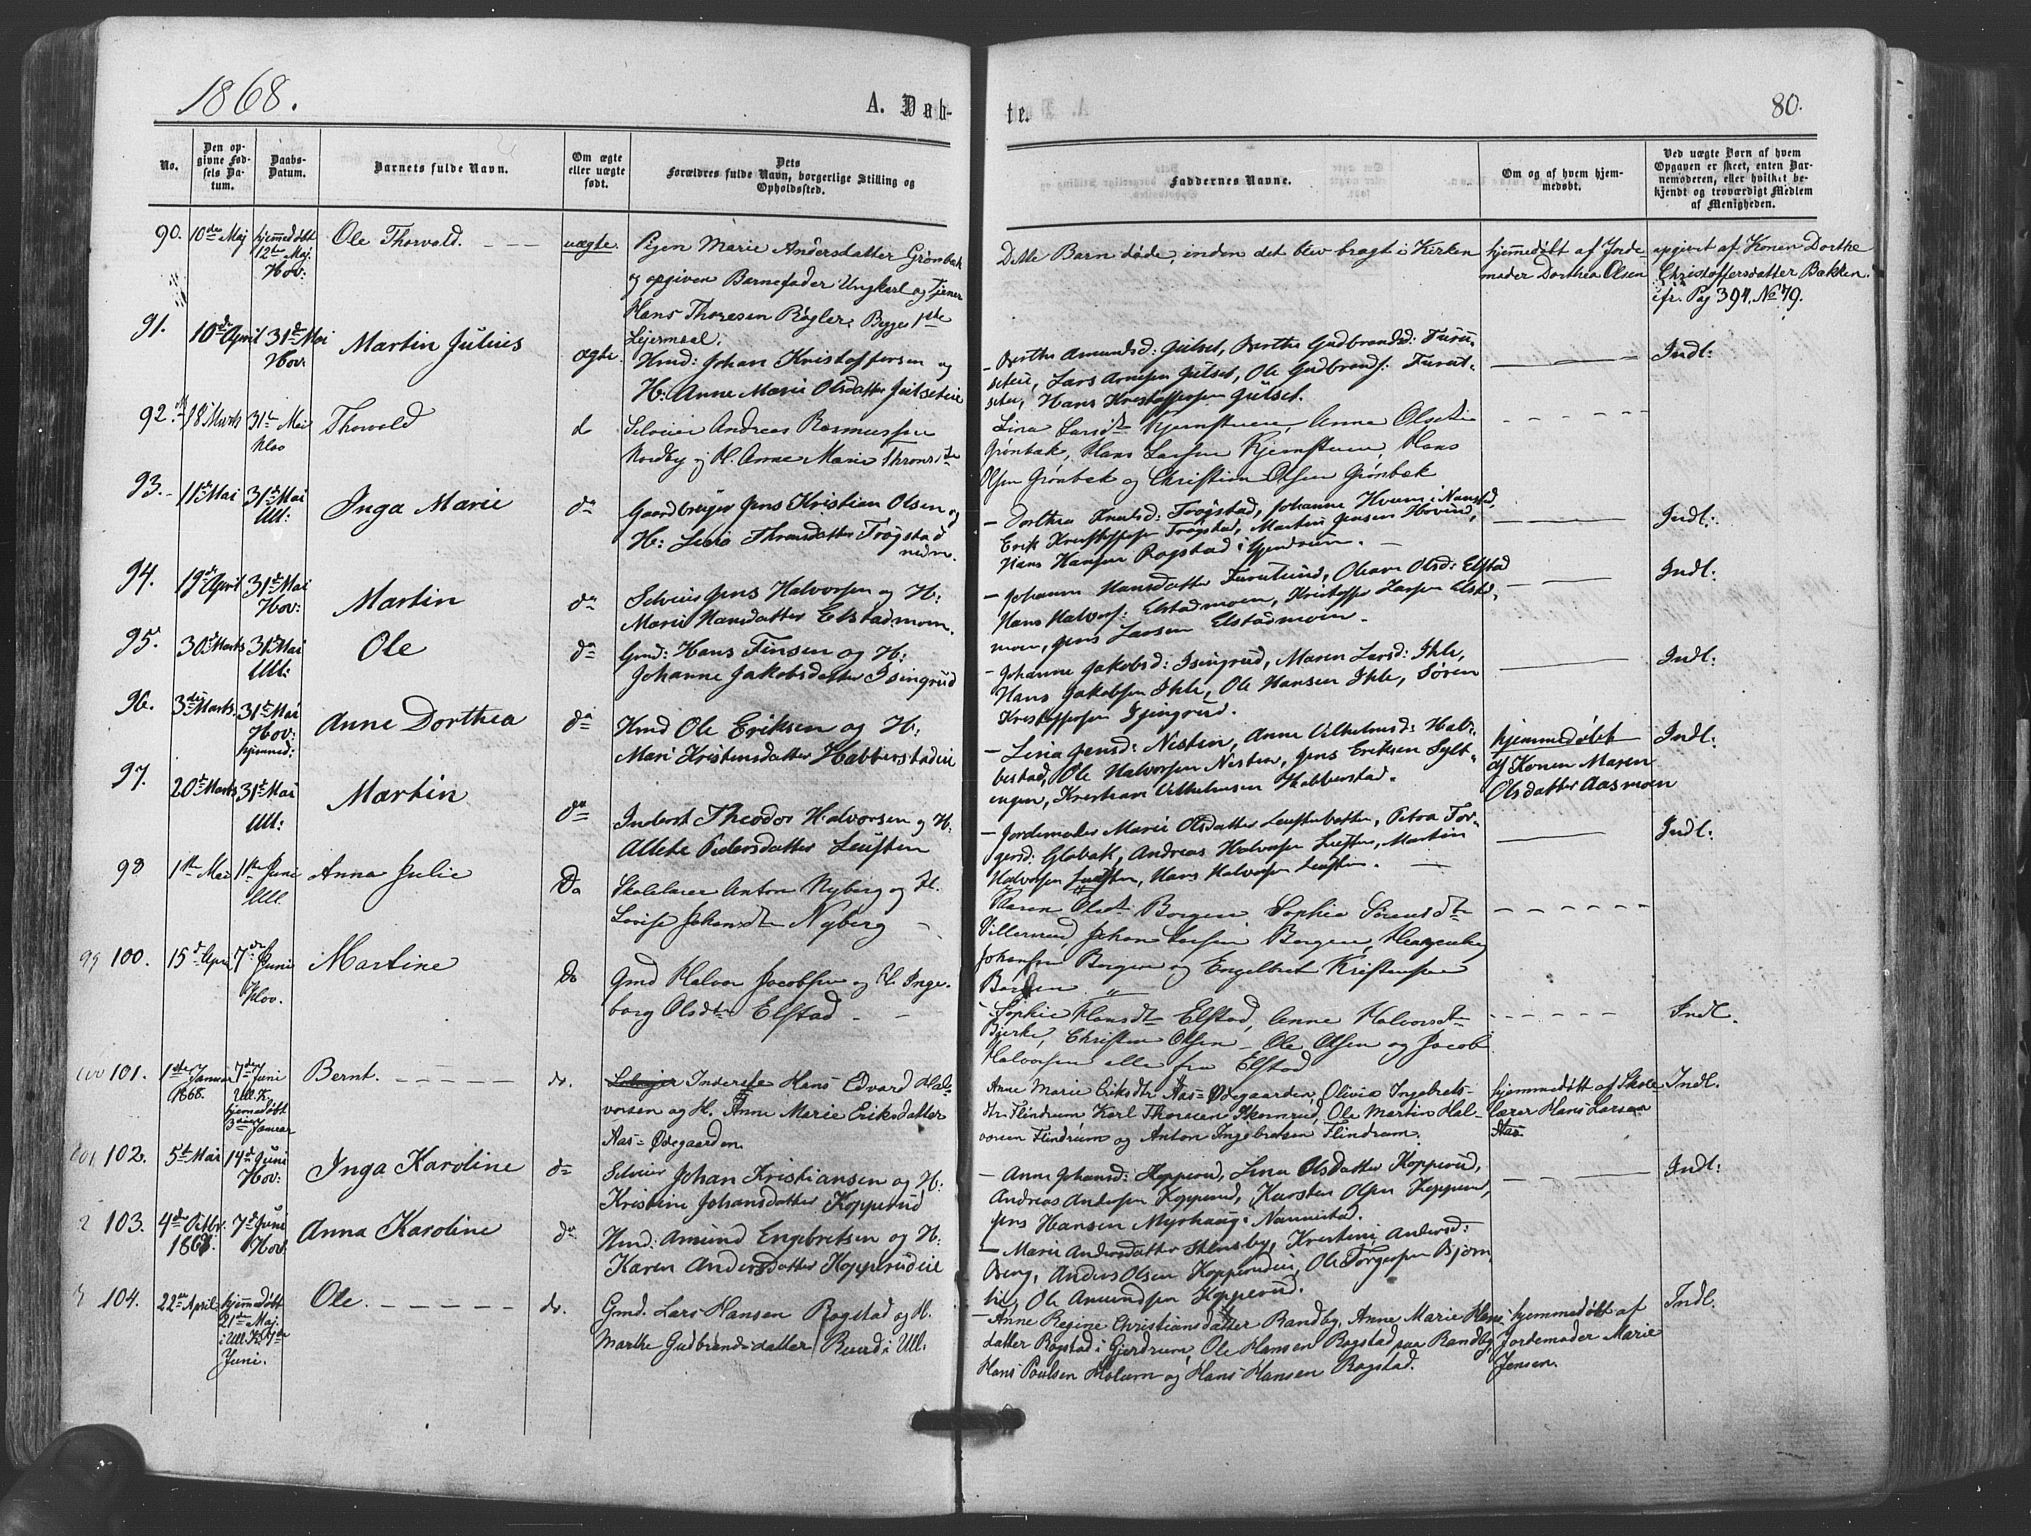 1868.
A. Døb-
te.
80.
No.
Den op-
givne Fød-
sels Da-
tum.
Daabs-
Datum.
Barnets fulde Navn.
Om ægte
eller uægte
født.
Dets
Forældres fulde Navn, borgerlige Stilling og
Opholdssted.
Faddernes Navne.
Om og af hvem hjem-
medøbt.
Ved uægte Børn af hvem
Opgaven er skeet, enten Bar-
nemoderen, eller hvilket be-
kjendt og troværdigt Medlem
af Menigheden.
90. 10de Maj hjemmedøbt Ole Thorvald. uægte. Pigen Marie Andersdatter Grønbæk
12te Maj.
Hov:
og opgiven Barnefader Ungkarl og Tjener
Hans Thoresen Røgler. Begges 1ste
Lejermaal.
Dette Barn døde, inden det blev bragt i Kirken
hjemmedøbt af Jorde-
moder Dorthea Olsen
opgivet af Konen Dorthe
Christoffersdatter Bakken.
cfr. Pag 394. No 79.
91. 10de April 31de Mai Martin Julius ægte. Hmd: Johan Kristoffersen og
Hov:
H: Anne Marie Olsdatter Gulseteie
- Berthe Amundsd: Gulset, Berthe Gudbrandsd: Furu-
seteie, Lars Arnesen Gulset, Ole Gudbrands: Furu-
seter, Hans Kristoffersen Gulset.
Indl:
92. 18 Marts 31te Mai Thorvald do Selveier Andreas Rasmussen
Hov
Nordby og H. Anne Marie
Lina Larsdtr Kjernstuen, Anna Olsdtr
Grønbæk, Hans Larsen Kjernstuen, Hans
Olsen Grønbæk og Christian Olsen Grønbæk
93. 11te Mai 31de Mai Inga Marie do Gaardbruger Jens Kristian Olsen og
Ull:
H: Lina Thronsdatter Trøgstad
nedre.
- Dorthea Knutsd: Trøgstad, Johanne Hvam i Nanestad,
Erik Kristoffersen Trøgstad, Martin Jensen Hovind,
Hans Hansen Rogstad i Gjerdrum.
Indl:
94. 19de April 31de Mai Martin do Selveier Jens Halvorsen og H:
Hov:
Marie Hansdatter Elstadmoen.
- Johanne Hansdatter Furulund, Oleane Olsd: Elstad
Hans Halvors: Elstadmoen, Kristoffer Larsen Elstad-
moen, Jens Larsen Elstadmoen.
Indl:
95. 30de Marts 31de Mai Ole do Gmd: Hans Finsen og H:
Ull:
Johanne Jakobsdatter Isingrud
- Johanne Jakobsd: Isingrud, Maren Larsd: Ihle,
Hans Jakobsen Ihle, Ole Hansen Ihle, Søren
Kristoffersen Isingrud.
Indl:
96. 3de Marts. 31te Mai Anne Dorthea do Hmd Ole Eriksen og H:
Hov:
hjemmed:
Mari Kristensdatter Habberstadeie
- Lina Jensd: Nesten, Anne Vilhelmsd: Hab-
berstad, Ole Halvorsen Nesten, Jens Eriksen Sylt-
engen, Kristian Vilhelmsen Habberstad.
hjemmedøbt
af Konen Maren
Olsdatter Aasmoen
Indl:
97. 20de Marts 31te Mai Martin do Inderst Theodor Halvorsen og H:
Ull:
Allete Pedersdatter Leuften
- Jordemoder Marie Olsdatter Leuftebatten, Petra Tor-
gersd: Globak, Andreas Halvorsen Leuften, Martin
Halvorsen Leuften, Hans Halvorsen Leuften.
Indl:
98 1ste Mai 1ste Juni Anna Julie Do Skolelærer Anton Nyberg og H.
Ull
Lovise Johansdtr Nyberg
Karen Olsdtr Borgen, Sophie Sørensdtr
Villerud Johan Larsen Borgen,
Johansen Borgen og Engelbret Kristensen
Borgen
99 100. 15de April 7de Juni Martine Do Gmd Halvor Jacobsen og H. Inge-
Hov.
borg Olsdtr Elstad
Sophie Hansdtr Elstad, Anne Halvorsdtr
Bjerke, Christen Olsen - Ole Olsen og Jacob
Halvorsen alle fra Elstad
Indl.
100 101. 1ste Januar 7de Juni Bernt. do. Inderste Hans Edvard Hal-
1868. Ull. K.
hjemmedøbt
3die Januar
vorsen og H. Anne Marie Eriksdatter
Aas-Ødegaarden
Anne Marie Eriksdtr Aas-Ødegaarden, Olivia Ingebrets-
dtr. Flindrum Karl Thoresen Skomrud, Ole Martin Hal-
vorsen Flindrum og Anton Ingebretsen Flindrum.
hjemmedøbt af Skole-
lærer Hans Larsen
Aas
Indl.
101 102. 5te Mai 14de Juni Inga Karoline do Selveier Johan Kristiansen og H:
Hov:
Kristine Johansdatter Kopperud
- Anne Johansd: Kopperud, Lina Olsdatter Kopperud,
Andreas Andersen Kopperud, Karsten Olsen Kopperud,
Jens Hansen Myrhaug i Nannestad.
Indl:
2 103. 4de Octbr. 7de Juni Anna Karoline do Hmd: Amund Engebretsen og H:
1867. Hov:
Karen Andersdatter Kopperudeie
- Marie Andersdatter Stensby, Kristine Andersd:
Berg, Anders Olsen Kopperudeie, Ole Torgersen Bjørn-
lie, Ole Amundsen Kopperud.
3 104. 22de April hjemmedøbt Ole. do. Gmd. Lars Hansen Rogstad og H.
21de Maj.
i Ull K. 7de
Juni.
Marthe Gudbrandsdatter Ruud i Ull.
- Anne Regine Christiansdatter Randby, Anne Marie Hans-
datter Rogstad i Gjerdrum, Ole Hansen Rogstad paa Randby,
Hans Poulsen Holum og Hans Hansen Rogstad.
hjemmedøbt af
Jordemoder Marie
Jensen.
Indl.